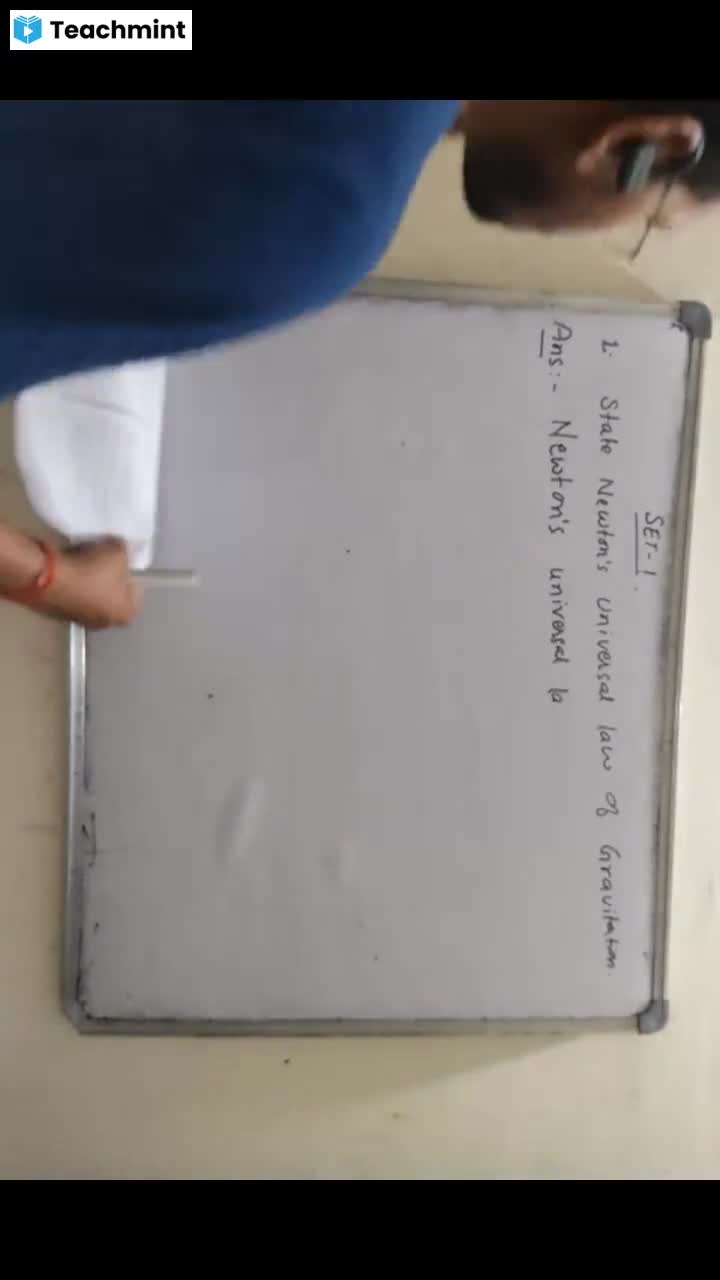 Teachmint
SET-1.
1. State Newton's Universal law of Gravitation.
Ans:- Newton's universal la